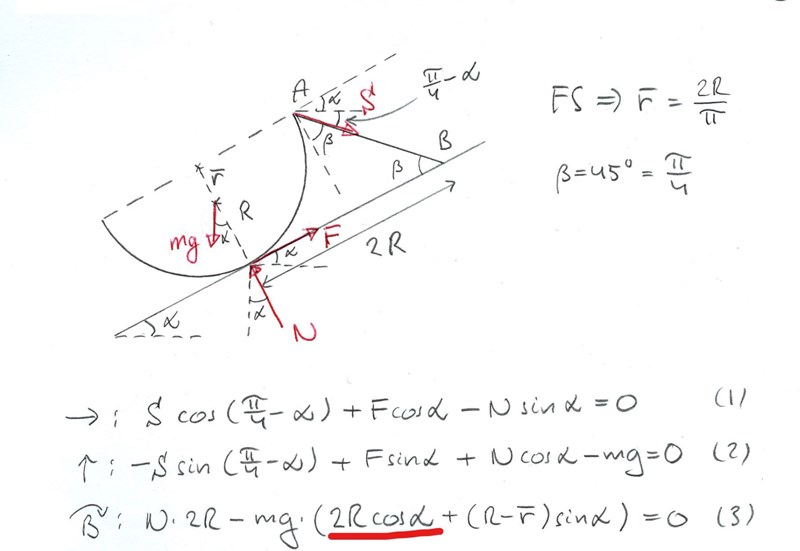 A
α
S
π/4 - α
β
B
β
r̄
R
mg
α
F
α
2R
α
N
α
FS ⇒ r̄ = 2R/π
β = 45° = π/4
→: S cos(π/4 - α) + F cosα - N sinα = 0 (1)
↑: -S sin(π/4 - α) + F sinα + N cosα - mg = 0 (2)
B: N·2R - mg·(2R cosα + (R - r̄) sinα) = 0 (3)